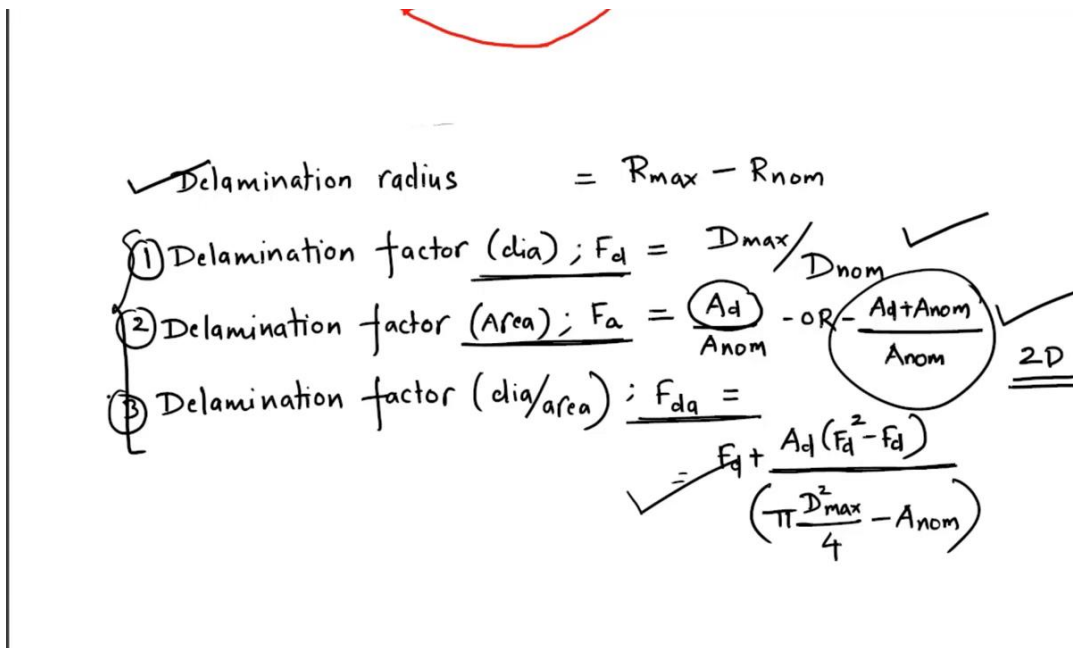 Delamination radius = Rmax - Rnom
① Delamination factor (dia) ; Fd = Dmax/Dnom
② Delamination factor (Area) ; Fa = Ad/Anom - OR - Ad+Anom/Anom
2D
③ Delamination factor (dia/area) ; Fda =
= Fd + Ad (Fd² - Fd) / (π D²max/4 - Anom)